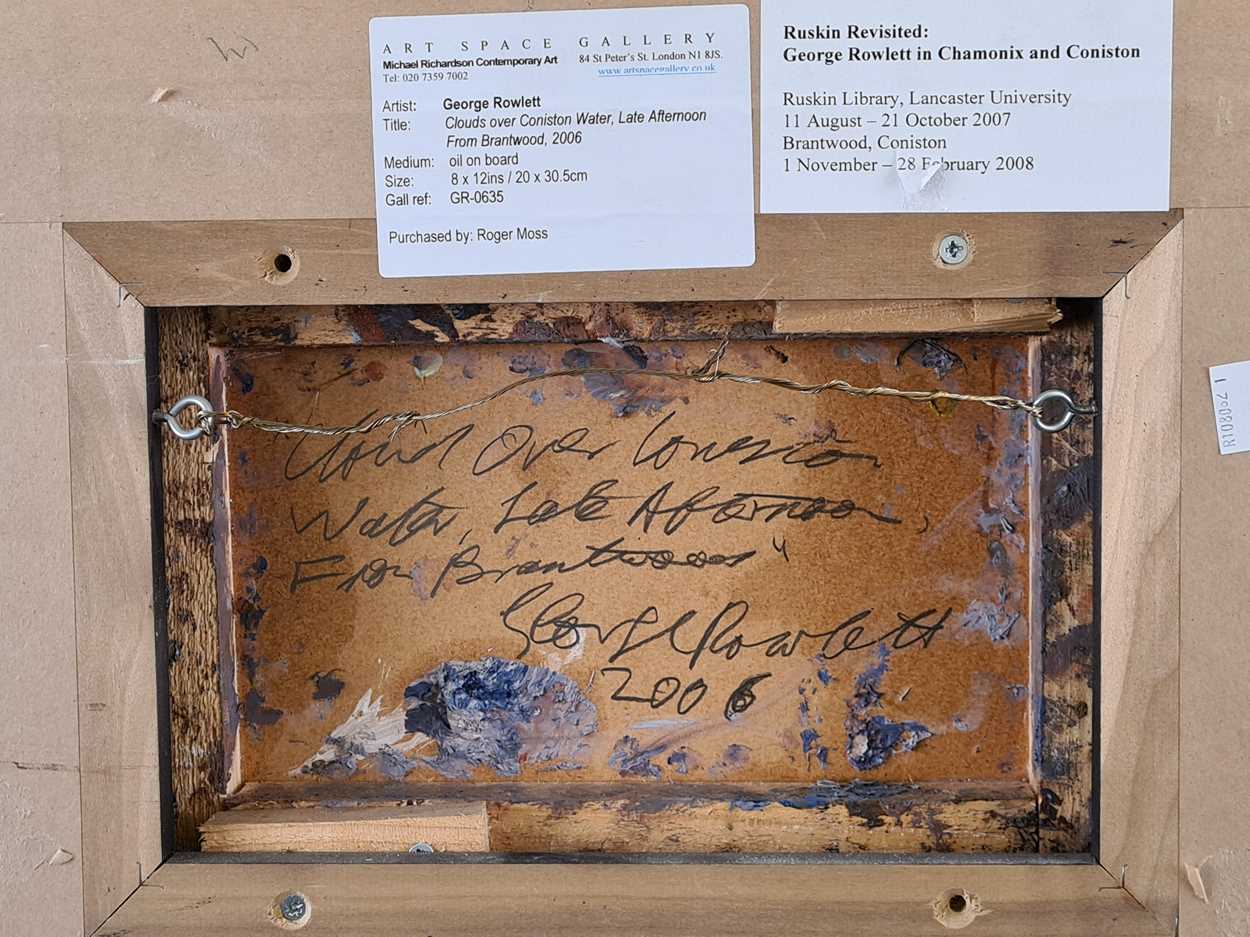 W
ART SPACE GALLERY
Michael Richardson Contemporary Art
84 St Peter's St. London N1 8JS.
Tel: 020 7359 7002
www.artspacegallery.co.uk
Artist: George Rowlett
Title: Clouds over Coniston Water, Late Afternoon
From Brantwood, 2006
Medium: oil on board
Size: 8 x 12ins / 20 x 30.5cm
Gall ref: GR-0635
Purchased by: Roger Moss
Ruskin Revisited:
George Rowlett in Chamonix and Coniston
Ruskin Library, Lancaster University
11 August – 21 October 2007
Brantwood, Coniston
1 November – 28 February 2008
"Cloud Over Coniston
Water, Late Afternoon,
From Brantwood"
George Rowlett
2006